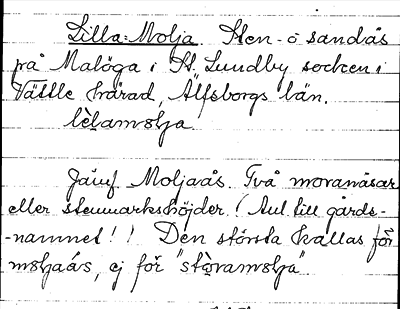 Lilla Molja. Sten- o sandås
på Malöga i St. Lundby socken i
Vättle härad, Älfsborgs län.
lèlamolja

Jämf Moljaås. Två moränåsar
eller stenmarkshöjder (Anl. till gårds-
-namnet!) Den största kallas för
moljaås, ej för "stòramolja".